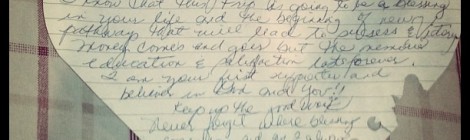 know that this trip is going to be a blessing
in your life and the beginning of new
pathways that will lead to success & victory
Money comes and goes but the memories
education & satisfaction lasts forever.
I am your first supporter and
believe in and you!!
Keep up the good work
Never forget where